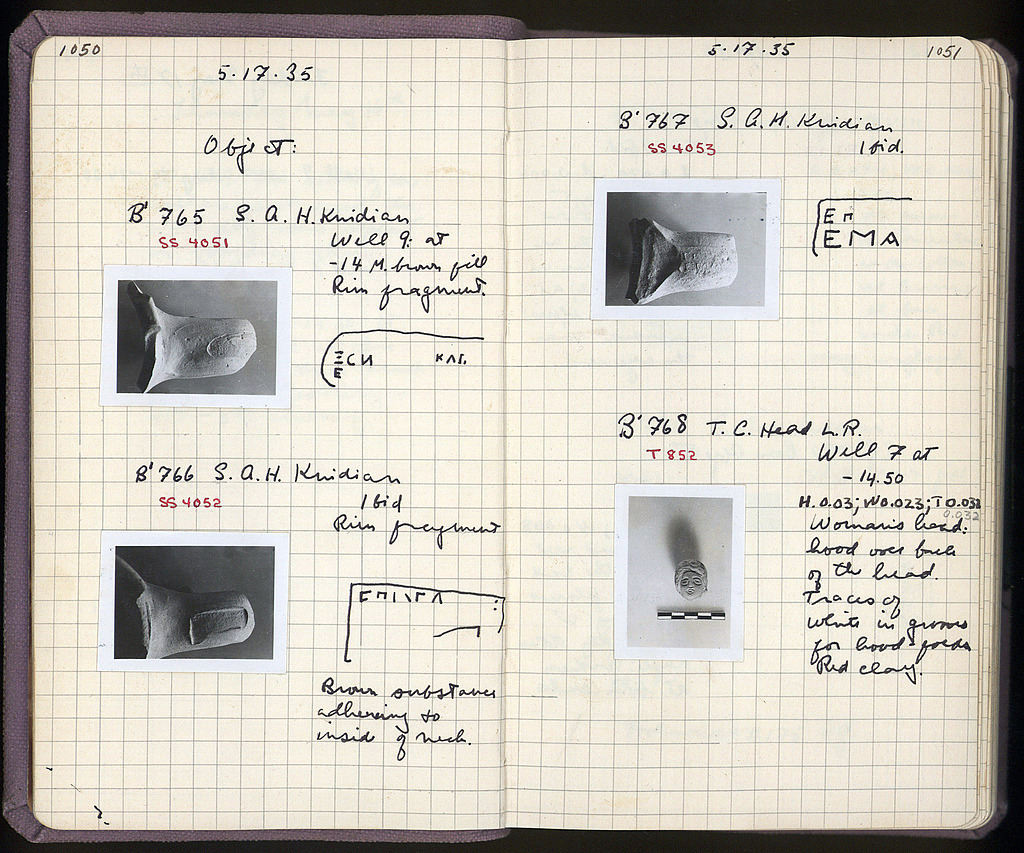 1050
5·17·35
Object:
B' 765 S. A. H. Knidian
SS 4051
Well 9: at
-14 M. brown fill
Rim fragment.
ΞCИ ΚΛΓ.
Ε
B' 766 S. A. H. Knidian
SS 4052
Ibid
Rim fragment
ΕΠΙ
Brown substance
adhering to
inside of neck.
5·17·35
1051
B' 767 S. A. H. Knidian
SS 4053
Ibid.
ΕΠ
ΕΜΑ
B' 768 T. C. Head L. R.
T 852
Well 7 at
-14.50
H. 0.03; W 0.023; T 0.032
0.032
Woman's head:
hood over back
of the head.
Traces of
white in grooves
for hood folds
Red clay.